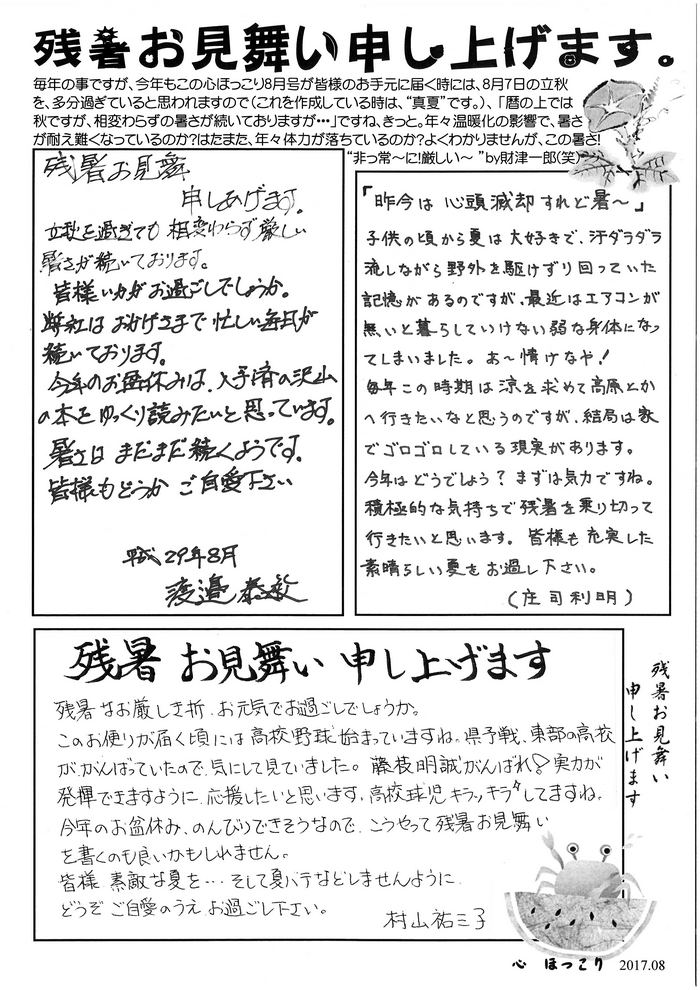 残暑お見舞い申し上げます。
毎年の事ですが、今年もこの心ほっこり8月号が皆様のお手元に届く時には、8月7日の立秋
を、多分過ぎていると思われますので(これを作成している時は、“真夏”です。)、「暦の上では
秋ですが、相変わらずの暑さが続いておりますが・・・」ですね、きっと。年々温暖化の影響で、暑さ
が耐え難くなっているのか?はたまた、年々体力が落ちているのか?よくわかりませんが、この暑さ!
“非っ常〜に!厳しい〜 ”by財津一郎(笑)
残暑お見舞
申しあげます。
立秋を過ぎても 相変わらず厳しい
暑さが続いております。
皆様いかがお過ごしでしょうか。
弊社は おかげさまで 忙しい毎日が
続いております。
今年のお盆休みは、入手済の沢山
の本を ゆっくり読みたいと思っています。
暑さは まだまだ続くようです。
皆様もどうか ご自愛下さい
平成29年8月
渡邉 泰
「昨今は 心頭滅却すれど暑〜」
子供の頃から夏は大好きで、汗ダラダラ
流しながら野外を駆けずり回っていた
記憶があるのですが、最近はエアコンが
無いと暮らしていけない弱な身体になっ
てしまいました。あ〜情けなや!
毎年この時期は涼を求めて高原とか
へ行きたいなと思うのですが、結局は家
でゴロゴロしている現実があります。
今年はどうでしょう?まずは気力ですね。
積極的な気持ちで残暑を乗り切って
行きたいと思います。皆様も充実した
素晴らしい夏をお過し下さい。
(庄司利明)
残暑 お見舞い 申し上げます
残暑なお厳しき折、お元気でお過ごしでしょうか。
このお便りが届く頃には高校野球始まっていますね。県予戦、東部の高校
が、がんばっていたので、気にして見ていました。藤枝明誠がんばれ♡実力が
発揮できますように、応援したいと思います。高校球児キラッキラッしてますね。
今年のお盆休み、のんびりできそうなので、こうやって残暑お見舞い
を書くのも良いかもしれません。
皆様 素敵な夏を・・・そして夏バテなどしませんように
どうぞ ご自愛のうえ お過ごし下さい。
村山祐三子
残暑お見舞い
申し上げます
心 ほっこり 2017.08